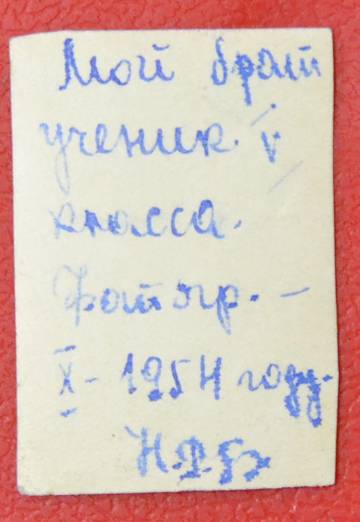 Мой брат
ученик V
класса.
Фотогр. –
X - 1954 году.